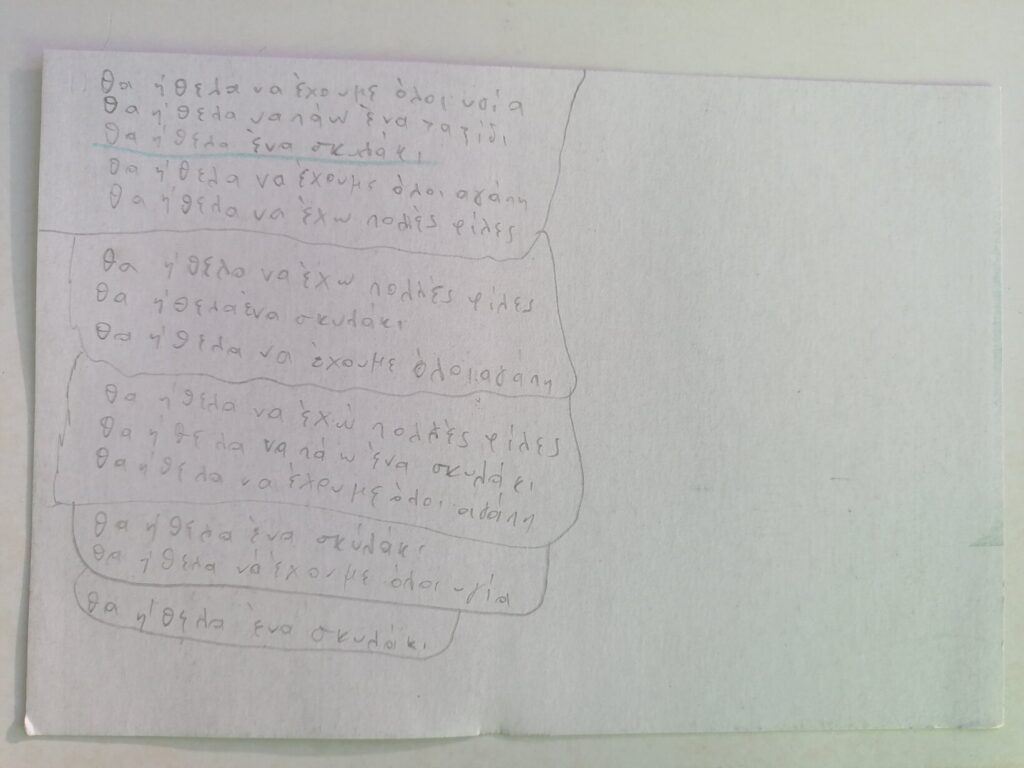 θα ήθελα να έχουμε όλοι υγία
θα ήθελα να πάω ένα ταξίδι
θα ήθελα ένα σκυλάκι
θα ήθελα να έχουμε όλοι αγάπη
θα ήθελα να έχω πολλές φίλες
θα ήθελα να έχω πολλές φίλες
θα ήθελα ένα σκυλάκι
θα ήθελα να έχουμε όλοι αγάπη
θα ήθελα να έχω πολλές φίλες
θα ήθελα να πάω ένα σκυλάκι
θα ήθελα να έχουμε όλοι αγάπη
θα ήθελα ένα σκυλάκι
θα ήθελα να έχουμε όλοι υγία
θα ήθελα ένα σκυλάκι